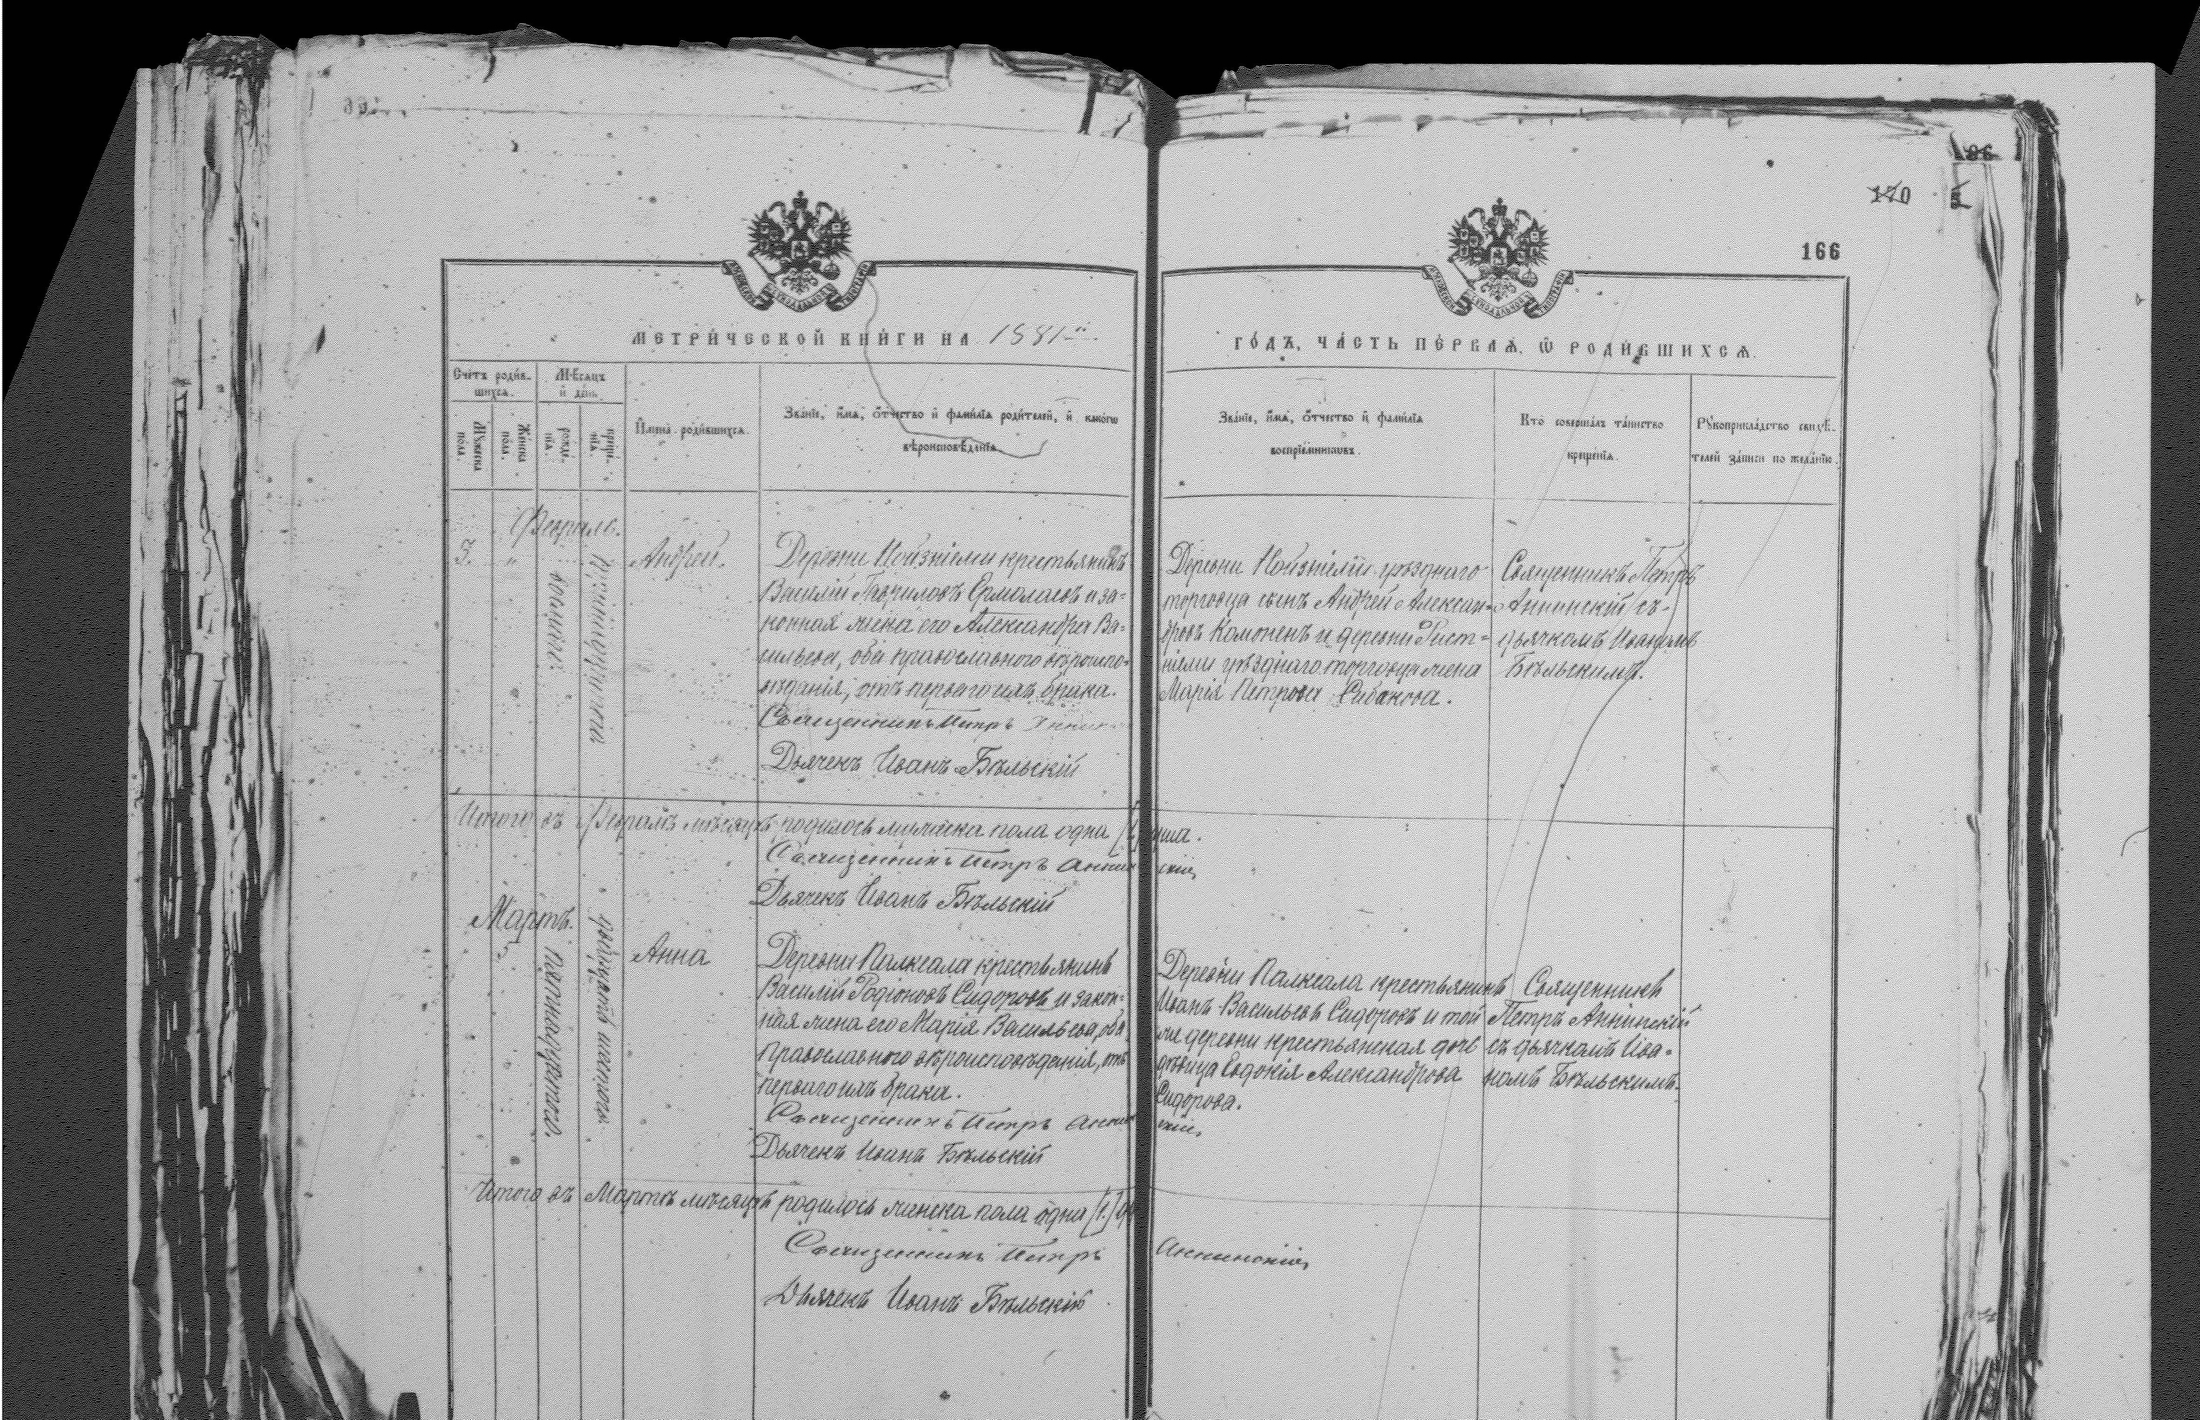 86
170
166
МЕТРИ́ЧЕСКОЙ КНИ́ГИ НА 1881й
ГО́ДЪ, ЧА́СТЬ ПЕ́РВАѦ, Ѡ РОДИ́ВШИХСѦ.
Сче́тъ роди́в-
шихсѧ.
Мꙋ́жеска по́ла.
Же́нска по́ла.
Мѣ́сѧцъ
и де́нь.
рожде́-нїѧ
креще́-нїѧ
И҆мена̀ роди́вшихсѧ.
Зва́нїе, и҆́мѧ, ѻ҆́тчество и҆ фами́лїѧ роди́телей, и҆ како́гѡ
вѣроисповѣ́данїѧ.
Зва́нїе, и҆́мѧ, ѻ҆́тчество и҆ фами́лїѧ
воспрїе́мникѡвъ.
Кто̀ соверша́лъ та́инство
креще́нїѧ.
Рꙋкоприкла́дство свидѣ́-
телей за́писи по жела́нїю.
Февраль.
3. "
восьмаго
Андрей.
Деревни Нойзніеми крестьянинъ
Василій Гавриловъ Ермолаевъ и за-
конная жена его Александра Ва-
сильева, оба православнаго вѣроиспо-
вѣданія, отъ перваго ихъ брака.
Священникъ Петръ Аннин
Дьячекъ Иванъ Бѣльскій
Деревни Нойзніеми уѣзднаго
торговца сынъ Андрей Алексан-
дровъ и деревни Рист-
ніеми уѣзднаго торговца жена
Марія Петрова
Священникъ Петръ
Аннинскій съ
дьячкомъ Иваномъ
Бѣльскимъ.
Итого въ Февралѣ мѣсяцѣ родилось мужеска пола одна [1] душа.
Священникъ Петръ Аннинскій
Дьячекъ Иванъ Бѣльскій
Мартъ.
3
Пятнадцатаго
двадцать шестаго
Анна
Деревни Палксала крестьянинъ
Василій Родіоновъ Сидоровъ и закон-
ная жена его Марія Васильева, оба
Православнаго вѣроисповѣданія, отъ
перваго ихъ брака.
Священникъ Петръ Аннинскій
Дьячекъ Иванъ Бѣльскій
Деревни Палксала крестьянинъ
Иванъ Васильевъ Сидоровъ и той
же деревни крестьянская дочь
дѣвица Евдокія Александрова
Сидорова.
Священникъ
Петръ Аннинскій
съ дьячкомъ Ива-
номъ Бѣльскимъ.
Итого въ Мартѣ мѣсяцѣ родилось женска пола одна [1.]
Священникъ Петръ Аннинскій
Дьячекъ Иванъ Бѣльскій